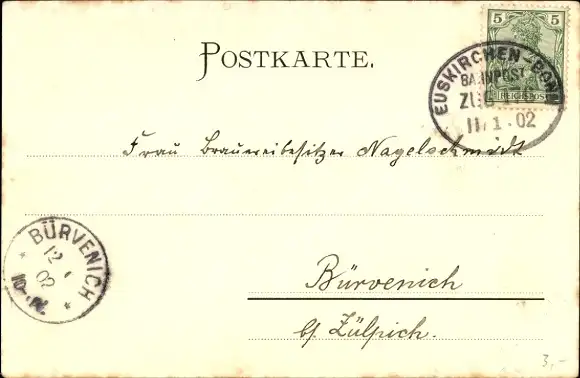 POSTKARTE.
5 5
REICHSPOST
EUSKIRCHEN-BONN
BAHNPOST
ZUG
11/1.02
Frau Brauereibesitzer Nagelschmidt
BÜRVENICH
12
02
Bürvenich
bf. Zülpich.
3,-